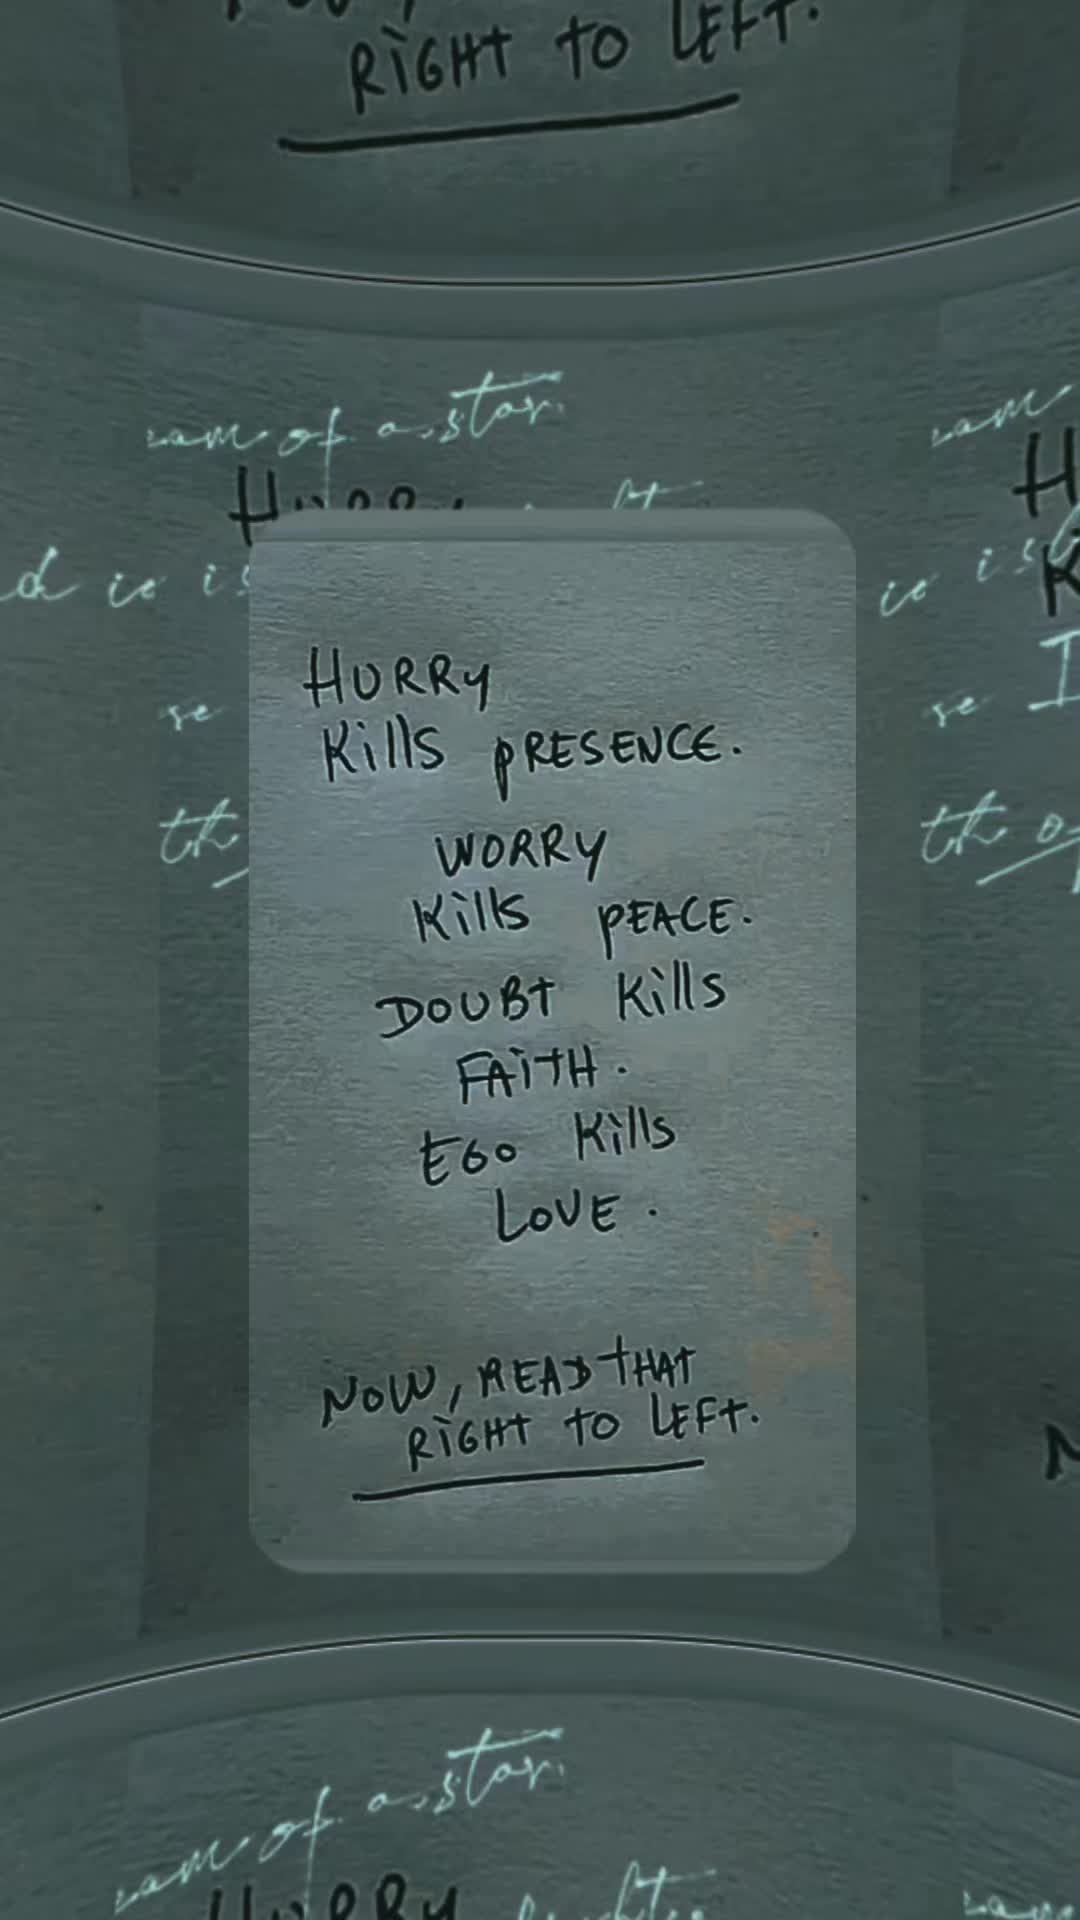 RIGHT TO LEFT.
of a star.
HURRY
Kills PRESENCE.
WORRY
Kills PEACE.
DOUBT Kills
FAITH.
EGO Kills
LOVE.
NOW, READ THAT
RIGHT TO LEFT.
of a star.
HURRY